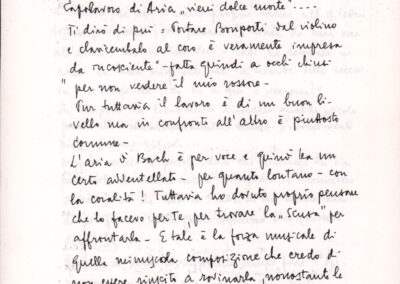 Capolavoro di Aria „vieni dolce morte" ....
Ti dirò di più = Portare Bonporti dal violino
e clavicembalo al coro è veramente impresa
da incosciente" - fatta quindi a occhi chiusi
" per non vedere il mio rossore -
Pur tuttavia il lavoro è di un buon li-
vello ma in confronto all'altro è piuttosto
comune -
L'aria di Bach è per voce e quindi ha un
certo addentellato - per quanto lontano - con
la coralità! Tuttavia ho dovuto proprio pensare
che lo facevo per te, per trovare la „Scusa" per
affrontarla - E tale è la forza musicale di
quella composizione che credo di
non essere riuscito a rovinarla, nonostante le